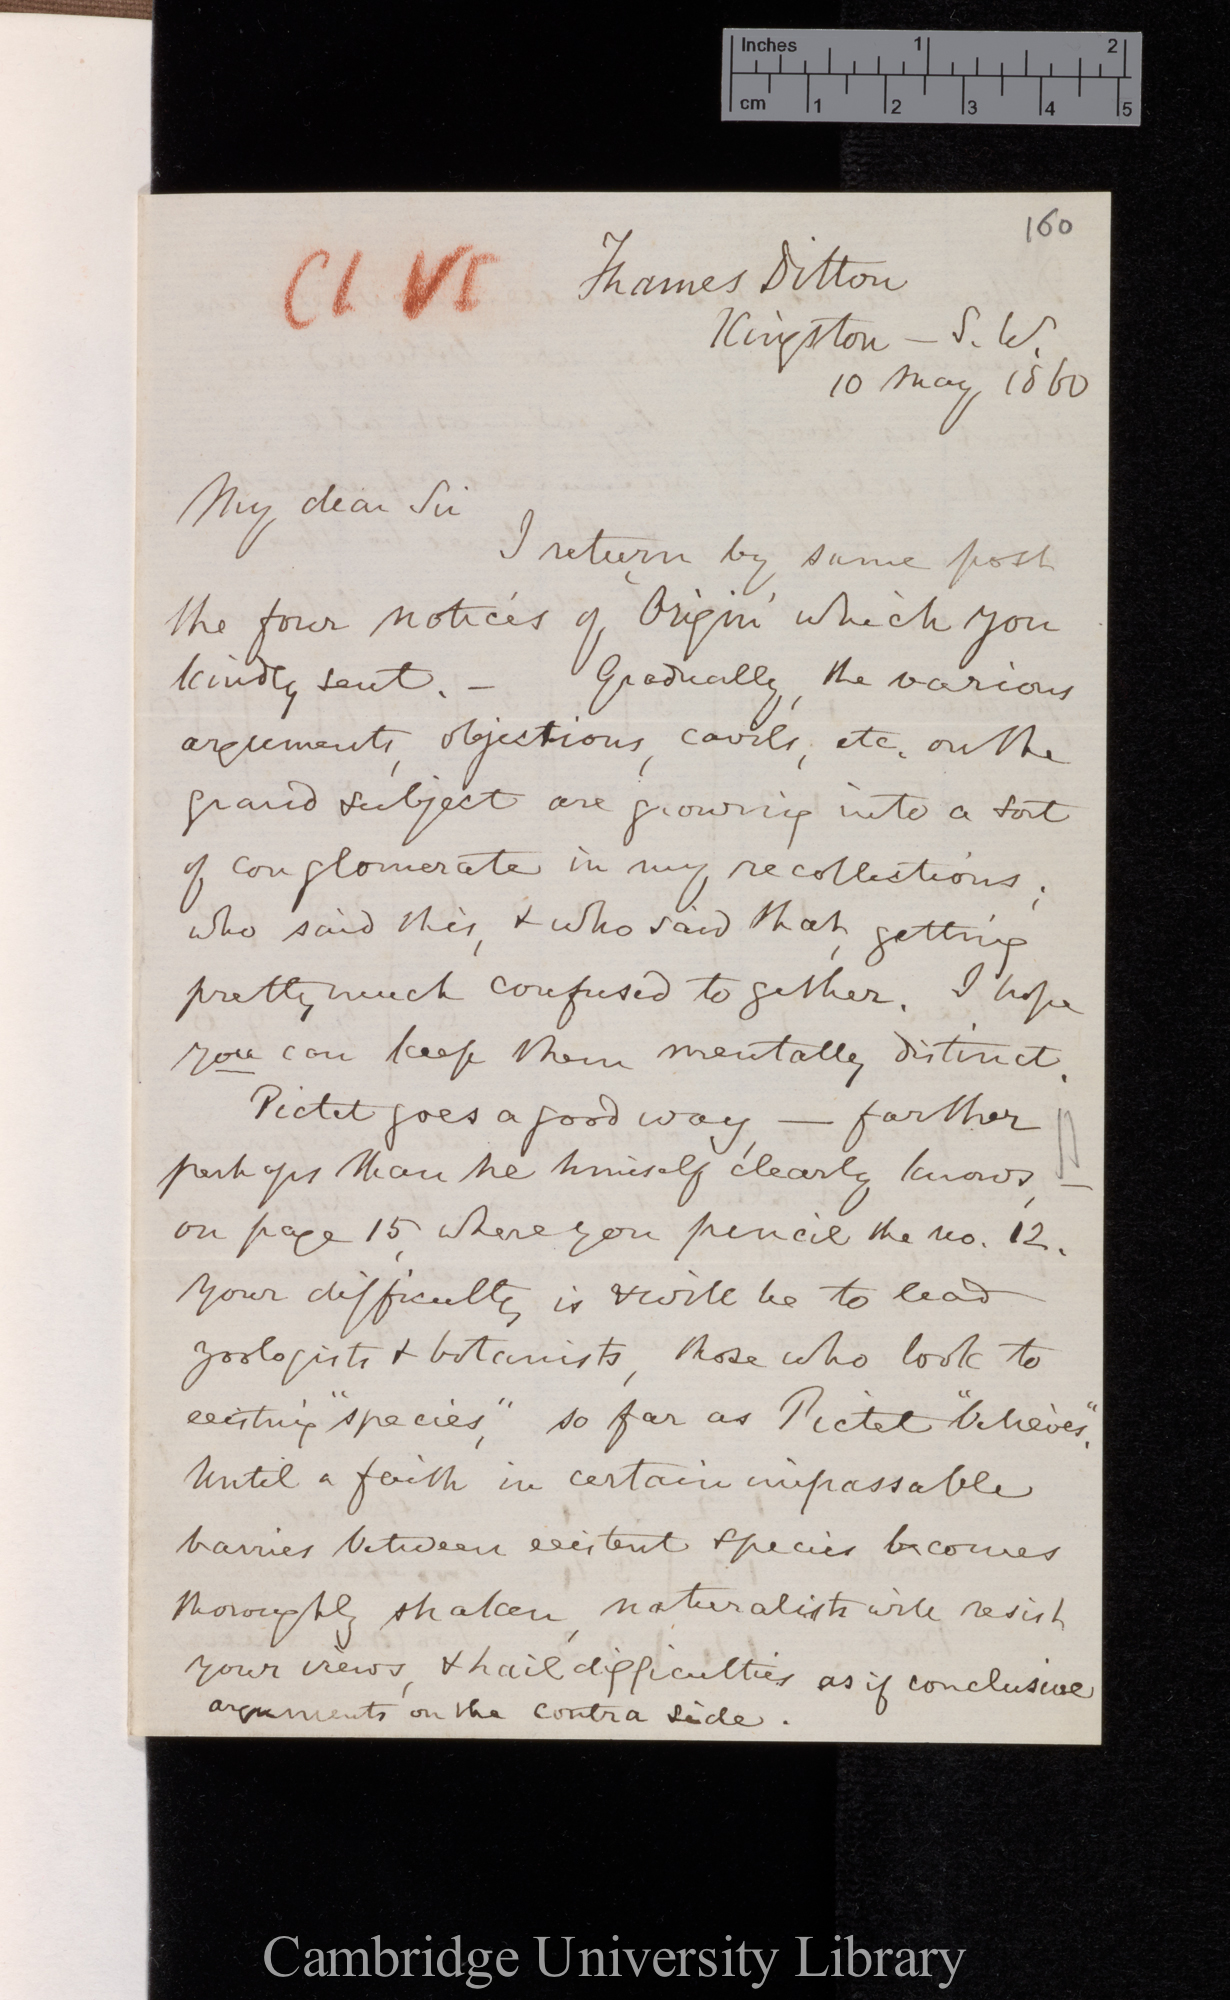 Inches 1 2
cm 1 2 3 4 5
160
CLVI
Thames Ditton
Kingston — S. W.
10 May 1860
My dear Sir
I return by same post
the four notices of 'Origin' which you
kindly sent. — Gradually, the various
arguments, objections, cavils, etc. on the
grand subject are growing into a sort
of conglomerate in my recollections;
who said this, & who said that, getting
pretty much confused together. I hope
you can keep them mentally distinct.
Pictet goes a good way, — farther
perhaps than he himself clearly knows, —
on page 15, where you pencil the no. 12.
Your difficulty is & will be to lead
zoologists & botanists, those who look to
existing "species," so far as Pictet "believes".
Until a faith in certain impassable
barries between existent species becomes
thoroughly shaken, naturalists will resist
your views, & hail difficulties as if conclusive
arguments on the contra side.
Cambridge University Library